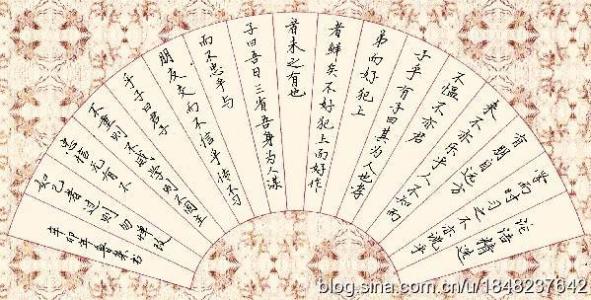 论语精选
学而时习之不亦说乎
有朋自远方
来不亦乐乎人不知而
不愠不亦君
子乎有子曰其为人也孝
弟而好犯上
者鲜矣不好犯上而好作
者未之有也
子曰吾日三省吾身为人谋
而不忠乎与
朋友交而不信乎传不习
乎子曰君子
不重则不威学则不固主
忠信无有不
如己者过则勿惮改
辛卯年
blog.sina.com.cn/u/1848237642